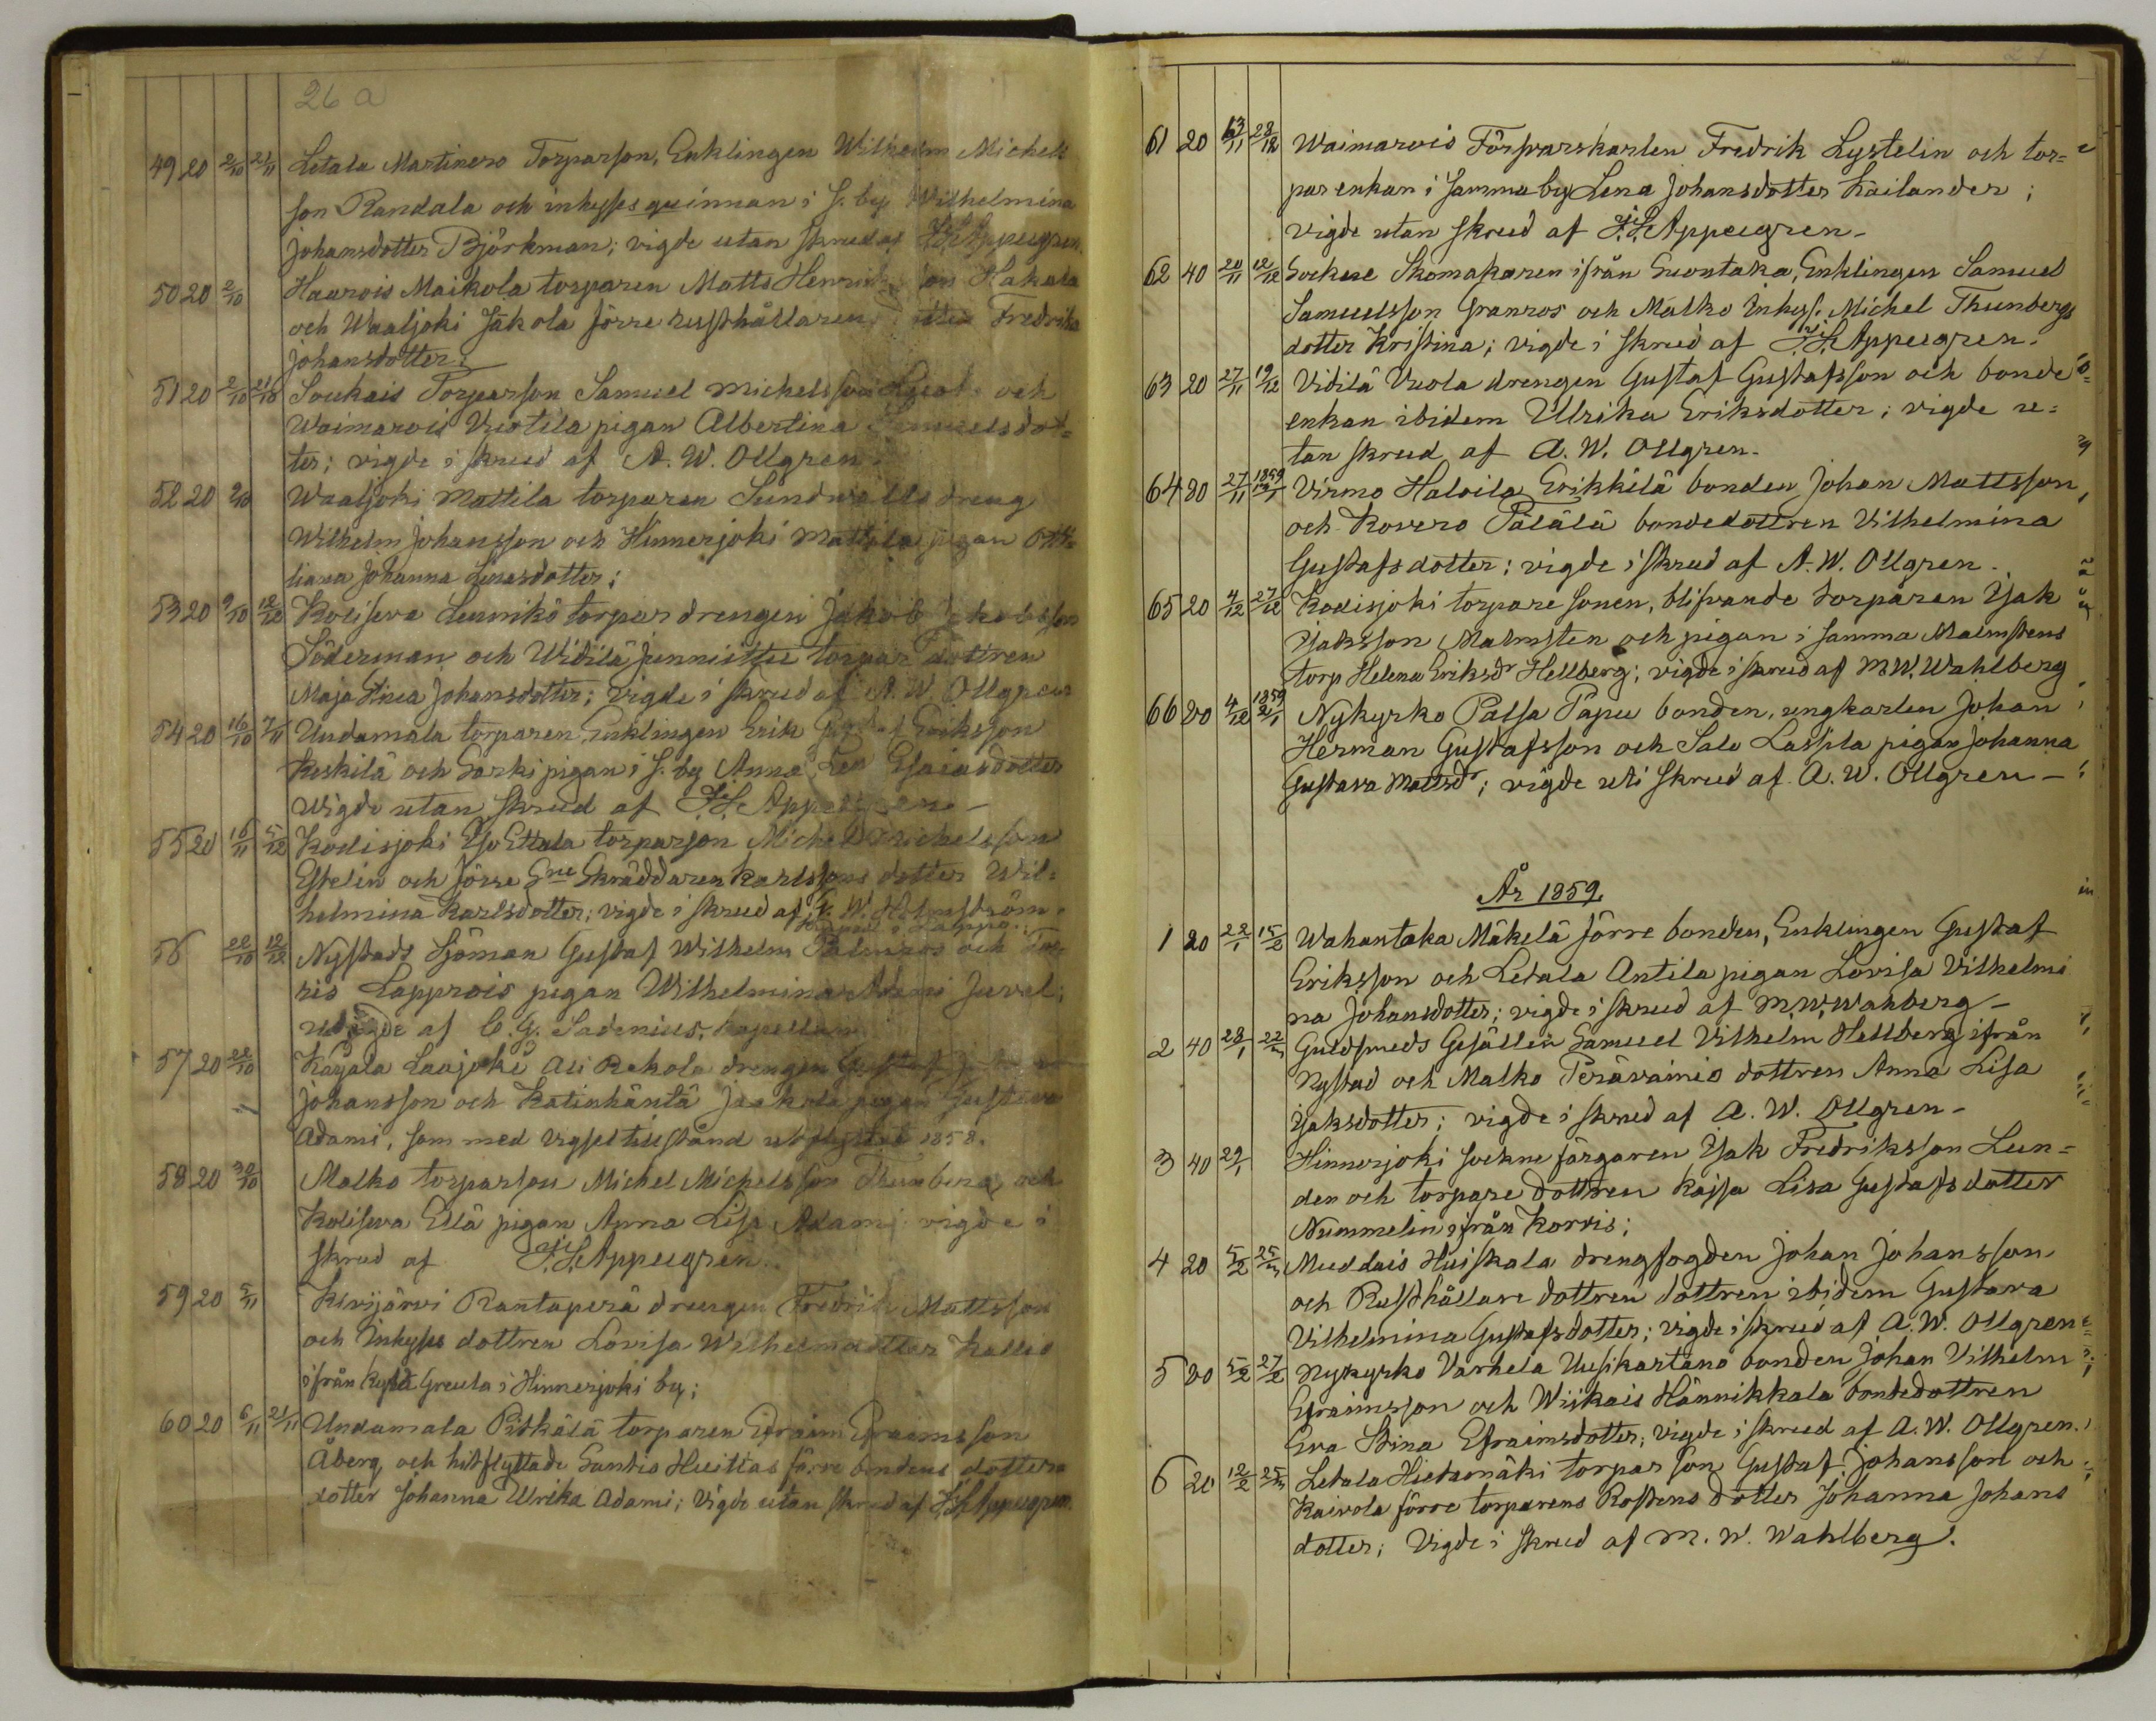 26 a
49 20 2/10 21/11 Letala Martinero Torparson, Enklingen Wilhelm Michels
son Randala och inhyses qvinnan i s. by Wilhelmina
Johansdotter Björkman; vigde utan skrud af Appelgren.
50 20 2/10 Haurois Maikola torparen Matts Henriks son Hakala
och Waaljoki Jakola förre rusthållaren Fredrika
Johansdotter;
51 20 2/10 Soukais Torparson Samuel Michelsson och
Waimarois Viotila pigan Albertina Samuelsdot=
ter; vigde i skrud af A. W. Ollgren.
52 20 2/10 Waaljoki Mattila torparen Sundwalls dreng
Wilhelm Johansson och Hinnerjoki Mattila pigan Otti=
liana Johanna Linusdotter;
53 20 9/10 12/12 Kolisewa Lennikö torpar drengen Jakob Jakobsson
Söderman och Widilä Junnisttu torpar dottren
Maja Stina Johansdotter; vigde i skrud af A. W. Ollgren
54 20 16/10 7/11 Undamala torparen, Enklingen Erik Gustaf Eriksson
Keskilä och Sarki pigan i s. by Anna Lea Esaiasdotter
wigde utan skrud af Appelgren —
55 20 16/11 5/12 Kodisjoki Iso Ettala torparson Michel Michelsson
Estelin och förre Skräddaren Karlssons dotter Wil=
helmina Karlsdotter; vigde i skrud af W. Holmström.
i Lappo.
56 22/10 12/12 Nystads Sjöman Gustaf Wilhelm Palmros och
Lapprois pigan Wilhelmina Adami Juvel;
af C. G. Sadenius, kapellan
57 20 22/10 Kayala Laajoki Ali Rekola drengen
Johansson och Katinhäntä Jaakola pigan Gustava
Adami, som med vigseltillstånd utflyttat 1858.
58 20 30/10 Malko torparson Michel Michelsson Thunberg och
Kolisewa Ellä pigan Anna Lisa Adami vigde i
skrud af Appelgren.
59 20 5/11 Kivijärvi Rantaperä drengen Fredrik Mattsson
och Inhyses dottren Lovisa Wilhelmsdotter Kallio
ifrån Kylä Greula i Hinnerjoki by;
60 20 6/11 21/11 Undamala Pitkälä torparen Efraim Efraimsson
Åberg, och hitflyttade Santio Huittas förre bondens dotters
dotter Johanna Ulrika Adami; vigde utan skrud af Appelgren.
61 20 13/11 28/12 Waimarois Försvarskarlen Fredrik Lystelin och tor=
par enkan i samma by Lena Johansdotter Kailander;
vigde utan skrud af Appelgren —
62 40 20/11 12/12 Sockne Skomakaren ifrån Suontaka, Enklingen Samuel
Samuelsson Granros och Malko Inhys. Michel Thunbergs
dotter Kristina; vigde i skrud af Appelgren.
63 20 27/11 19/12 Vidilä Uuola drengen Gustaf Gustafsson och bonde
enkan ibidem Ulrika Eriksdotter; vigde u=
tan skrud af A. W. Ollgren.
64 20 27/11 1859 Virmo Haloila Erikkilä bonden Johan Mattsson
och Kovero Pälälä bondedottren Vilhelmina
Gustafsdotter; vigde i skrud af A. W. Ollgren.
65 20 4/12 27/12 Kodisjoki torpare sonen, blifvande torparen Isak
Isaksson Malmsten och pigan i samma Malmstens
torp Helena Eriksdr Hellberg; vigde i skrud af M. W. Wahlberg
66 20 4/12 1859 2/1 Nykyrko Palsa Päpu bonden, ungkarlen Johan
Herman Gustafsson och Salo Lassila pigan Johanna
Gustava Mattsdr; vigde uti skrud af A. W. Ollgren —
År 1859.
1 20 22/1 15/2 Wahantaka Mäkelä förre bonden, Enklingen Gustaf
Eriksson och Letala Antila pigan Lovisa Vilhelmi
na Johansdotter; vigde i skrud af M. W. Wahberg —
2 40 23/1 Guldsmeds Gesällen Samuel Vilhelm Hellberg ifrån
Nystad och Malko Perävainio dottren Anna Lisa
Isaksdotter; vigde i skrud af A. W. Ollgren —
3 40 29/1 Hinnerjoki sockne färgaren Isak Fredriksson Lun=
den och torpare dottren Kajsa Lisa Gustafsdotter
Nummelin ifrån Korvis;
4 20 5/2 Muddais Huiskala drengfogden Johan Johansson
och Rusthållare dottren dottren ibidem Gustava
Vilhelmina Gustafsdotter; vigde i skrud af A. W. Ollgren
5 20 5/2 27/2 Nykyrko Varhela Uusikartano bonden Johan Vilhelm
Efraimsson och Wiikais Hännikkala bondedottren
Eva Stina Efraimsdotter; vigde i skrud af A. W. Ollgren.
6 20 12/2 Letala Hietamäki torpar son Gustaf Johansson och
Kaivola förre torparens Rostens dotter Johanna Johans
dotter; Vigde i skrud af M. W. Wahlberg.